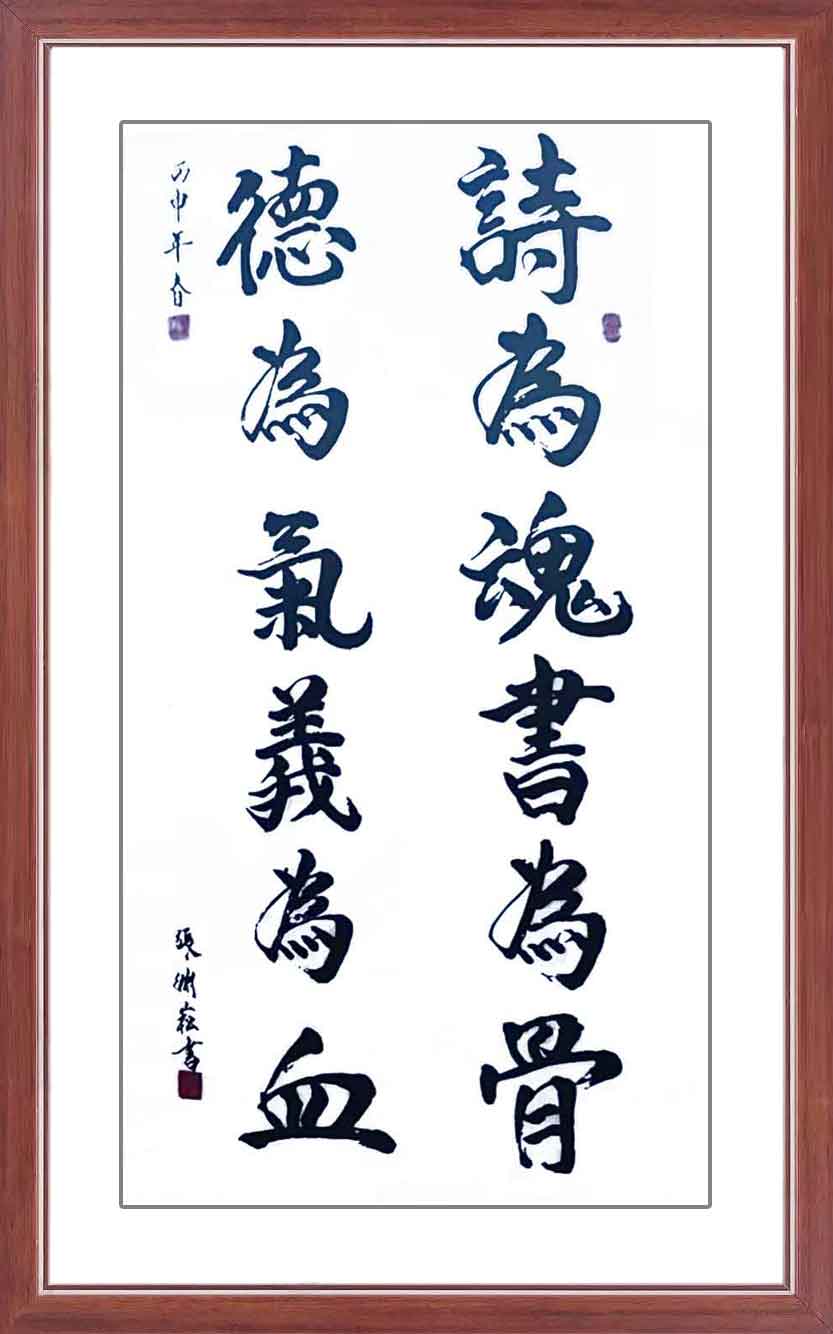 詩為魂書為骨
德為氣義為血
丙申年春
張渊崧書